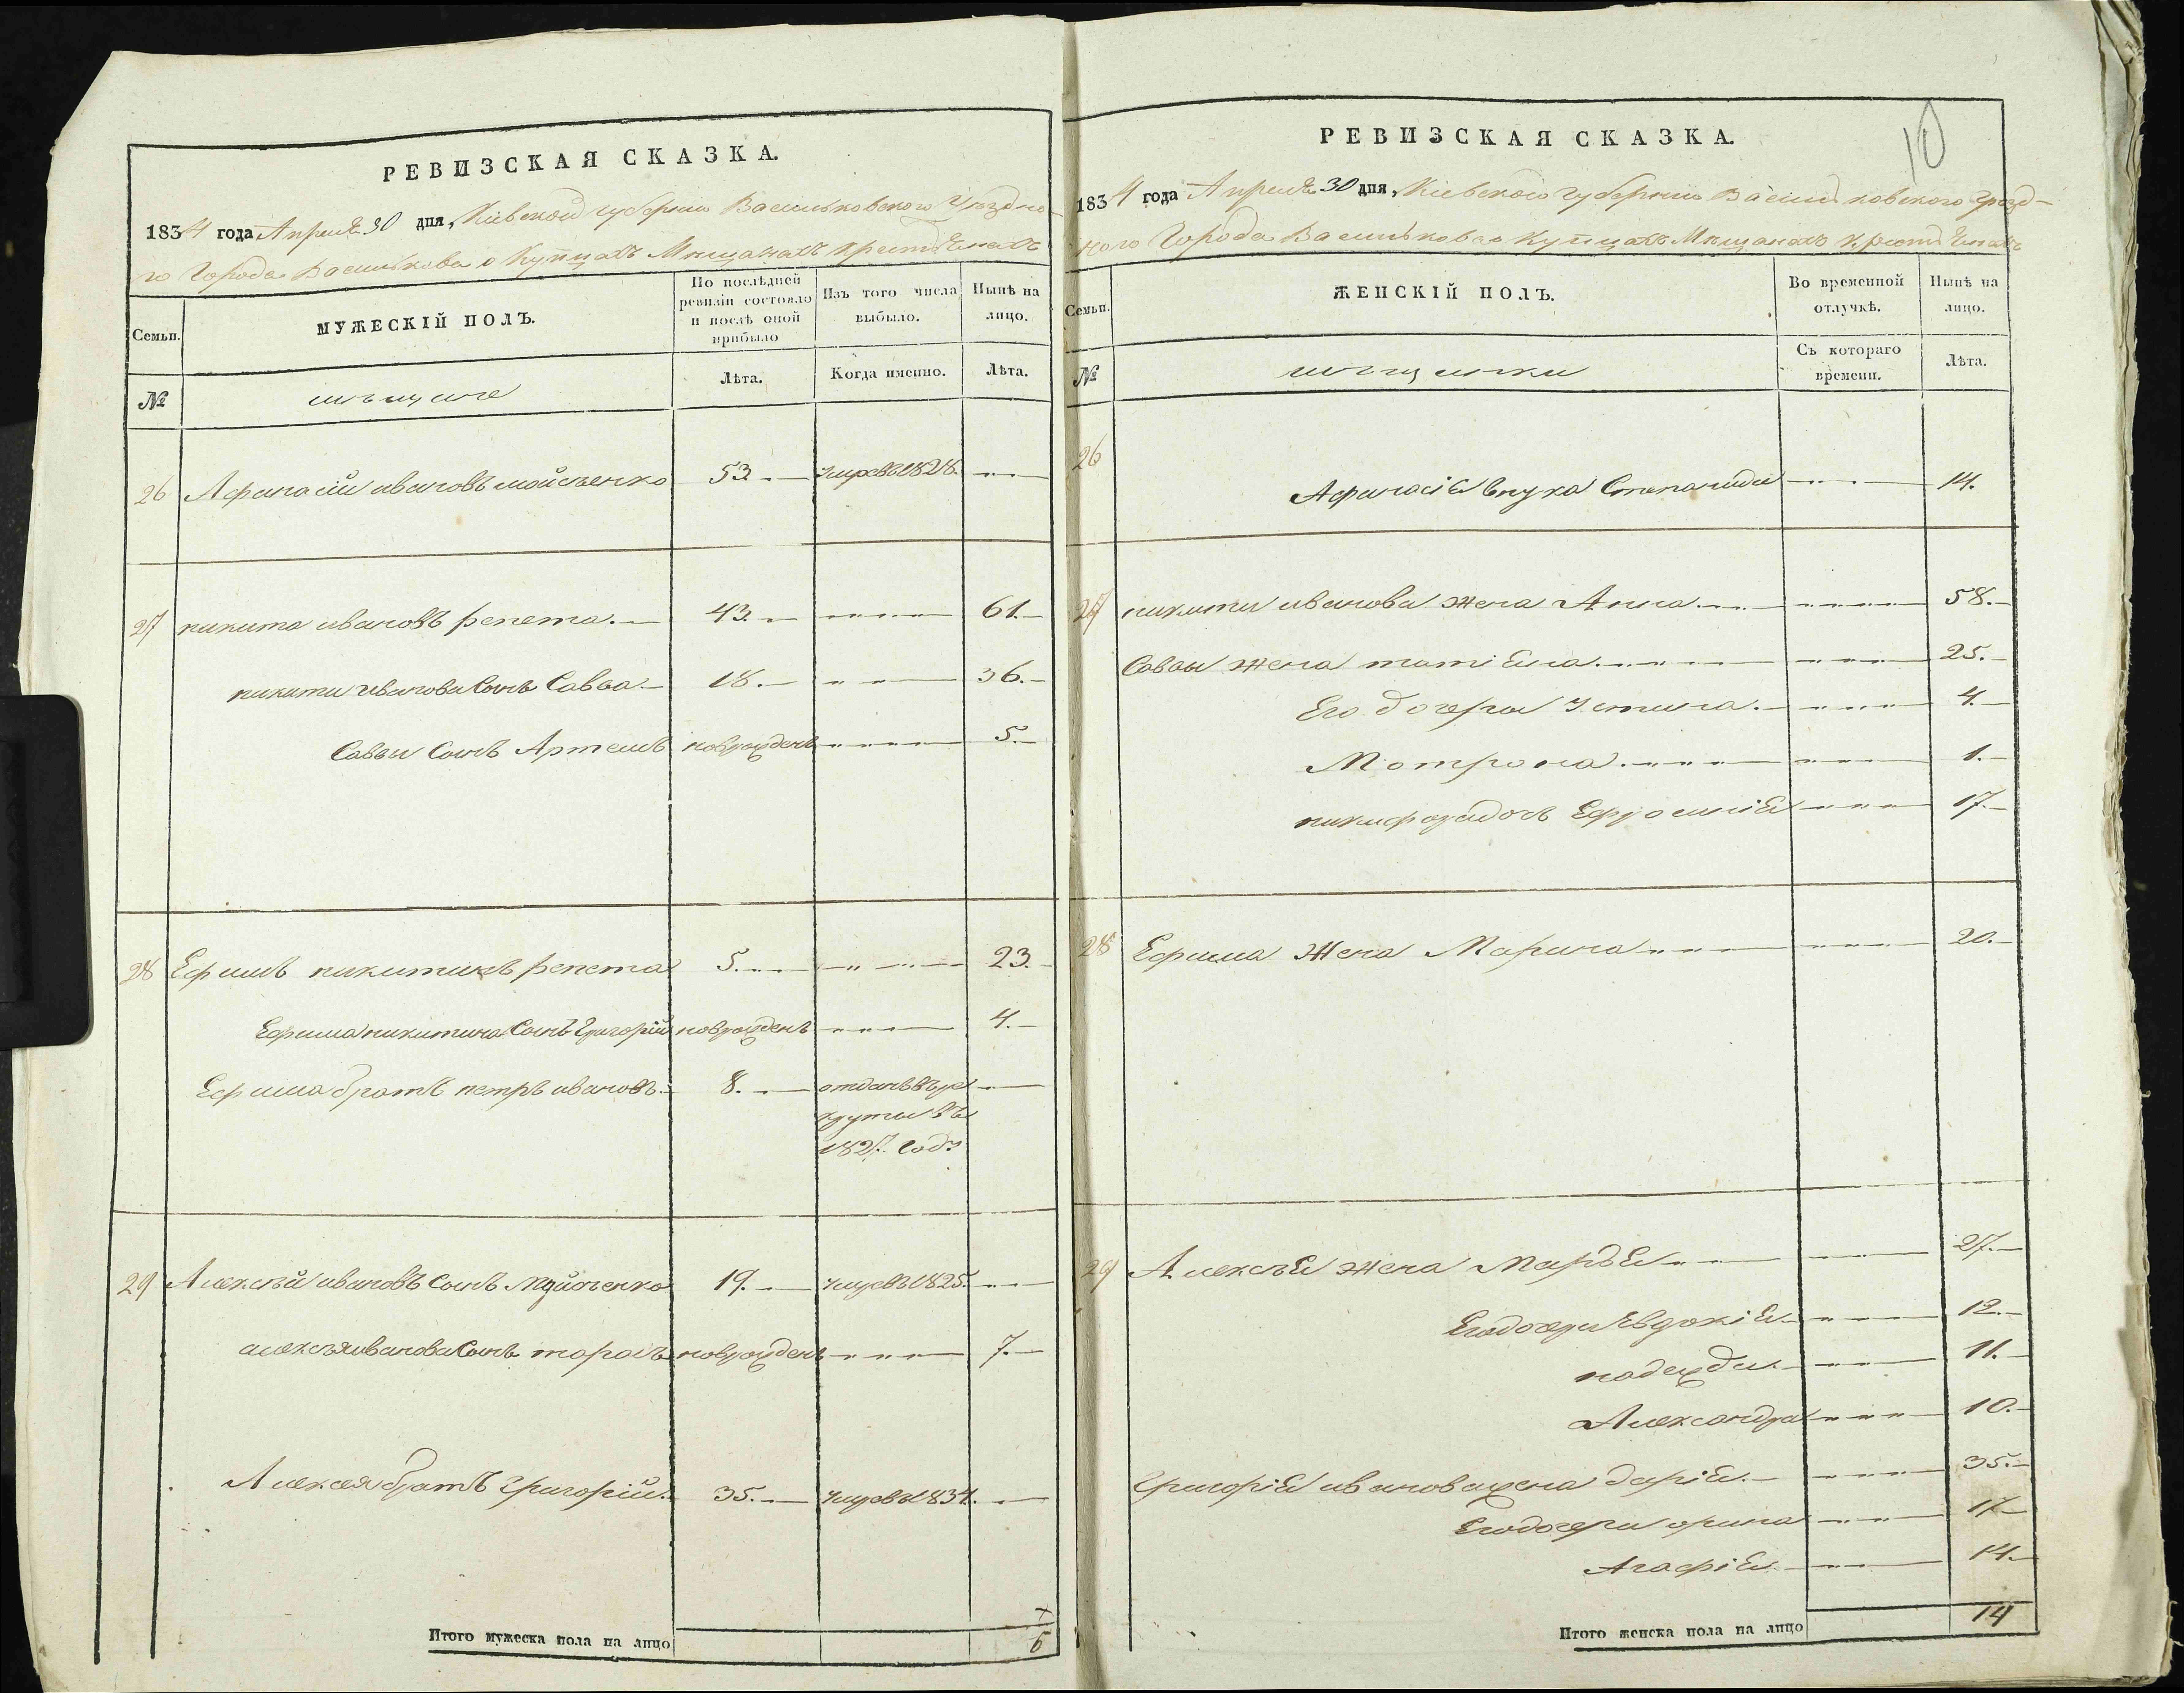 РЕВИЗСКАЯ СКАЗКА.
1834 года Апреля 30 дня, Кіевской губерніи Васильковского Уездно-
го Города Василькова о Купцахъ Мещанахъ Христіянахъ
Семьи.
МУЖЕСКІЙ ПОЛЪ.
По послѣдней ревизіи состояло и послѣ оной прибыло
Изъ того числа выбыло.
Нынѣ на лицо.
№
мещане
Лѣта.
Когда именно.
Лѣта.
26 Афанасій ивановъ мойсѣенко 53. умре въ 1828.
27 никита ивановъ репета. 43. 61.
никиты иванова Сынъ Савва 18. 36.
Саввы Сынъ Артемъ новрожденъ 5.
28 Ефимъ никитинъ репета 5. 23.
Ефима никитина Сынъ Григорій новрожденъ 4.
Ефима братъ петръ ивановъ. 8. отданъ въ ре
круты въ
1827. Году
29 Алексѣй ивановъ Сынъ Мойсѣенко 19. умре въ 1825.
алексѣя иванова Сынъ тарасъ новрожденъ 7.
Алексея братъ григорій. 35. умре въ 1834.
Итого мужеска пола на лицо
6
РЕВИЗСКАЯ СКАЗКА.
10
1834 года Апреля 30 дня, Кіевской губерніи Васильковского уезд-
ного Города Василькова о Купцахъ Мещанахъ Христіянахъ
Семьи.
ЖЕНСКІЙ ПОЛЪ.
Во временной отлучкѣ.
Нынѣ на лицо.
№
мещанки
Съ котораго времени.
Лѣта.
26 Афанасія внука Степанида 14.
27 никиты иванова жена Анна 58.
Саввы жена татіяна. 25.
Его дочери Устина. 4.
Мотрона. 1.
Ефросинія 17.
28 Ефима Жена Марина 20.
29 Алексѣя жена Марья 27.
Его дочери Евдокія 12.
надежда. 11.
Александра 10.
григорія иванова жена дарія. 35.
Его дочери орина 17
Агафія. 14.
Итого женска пола на лицо 14